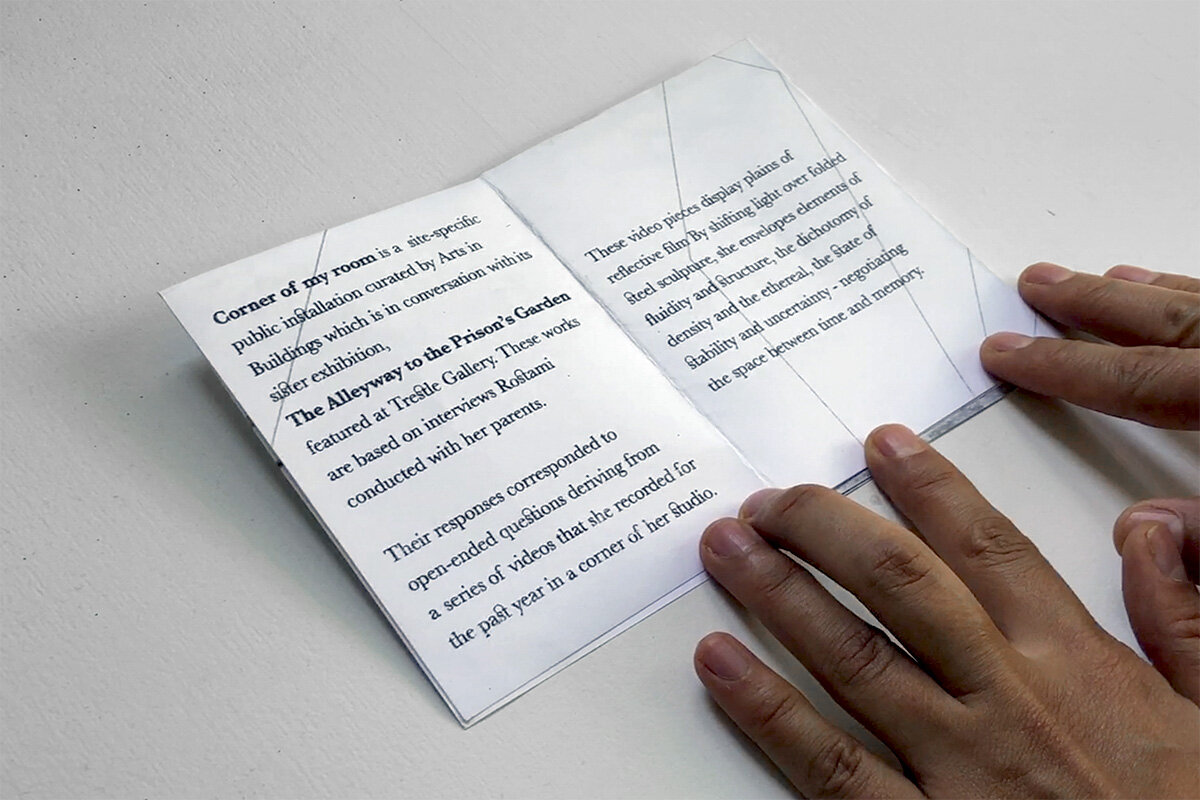 Corner of my room is a site-specific
public installation curated by Arts in
Buildings which is in conversation with its
sister exhibition,
The Alleyway to the Prison's Garden
featured at Trestle Gallery. These works
are based on interviews Rostami
conducted with her parents.
Their responses corresponded to
open-ended questions deriving from
a series of videos that she recorded for
the past year in a corner of her studio.
These video pieces display plains of
reflective film By shifting light over folded
steel sculpture, she envelopes elements of
fluidity and structure, the dichotomy of
density and the ethereal, the state of
stability and uncertainty - negotiating
the space between time and memory.